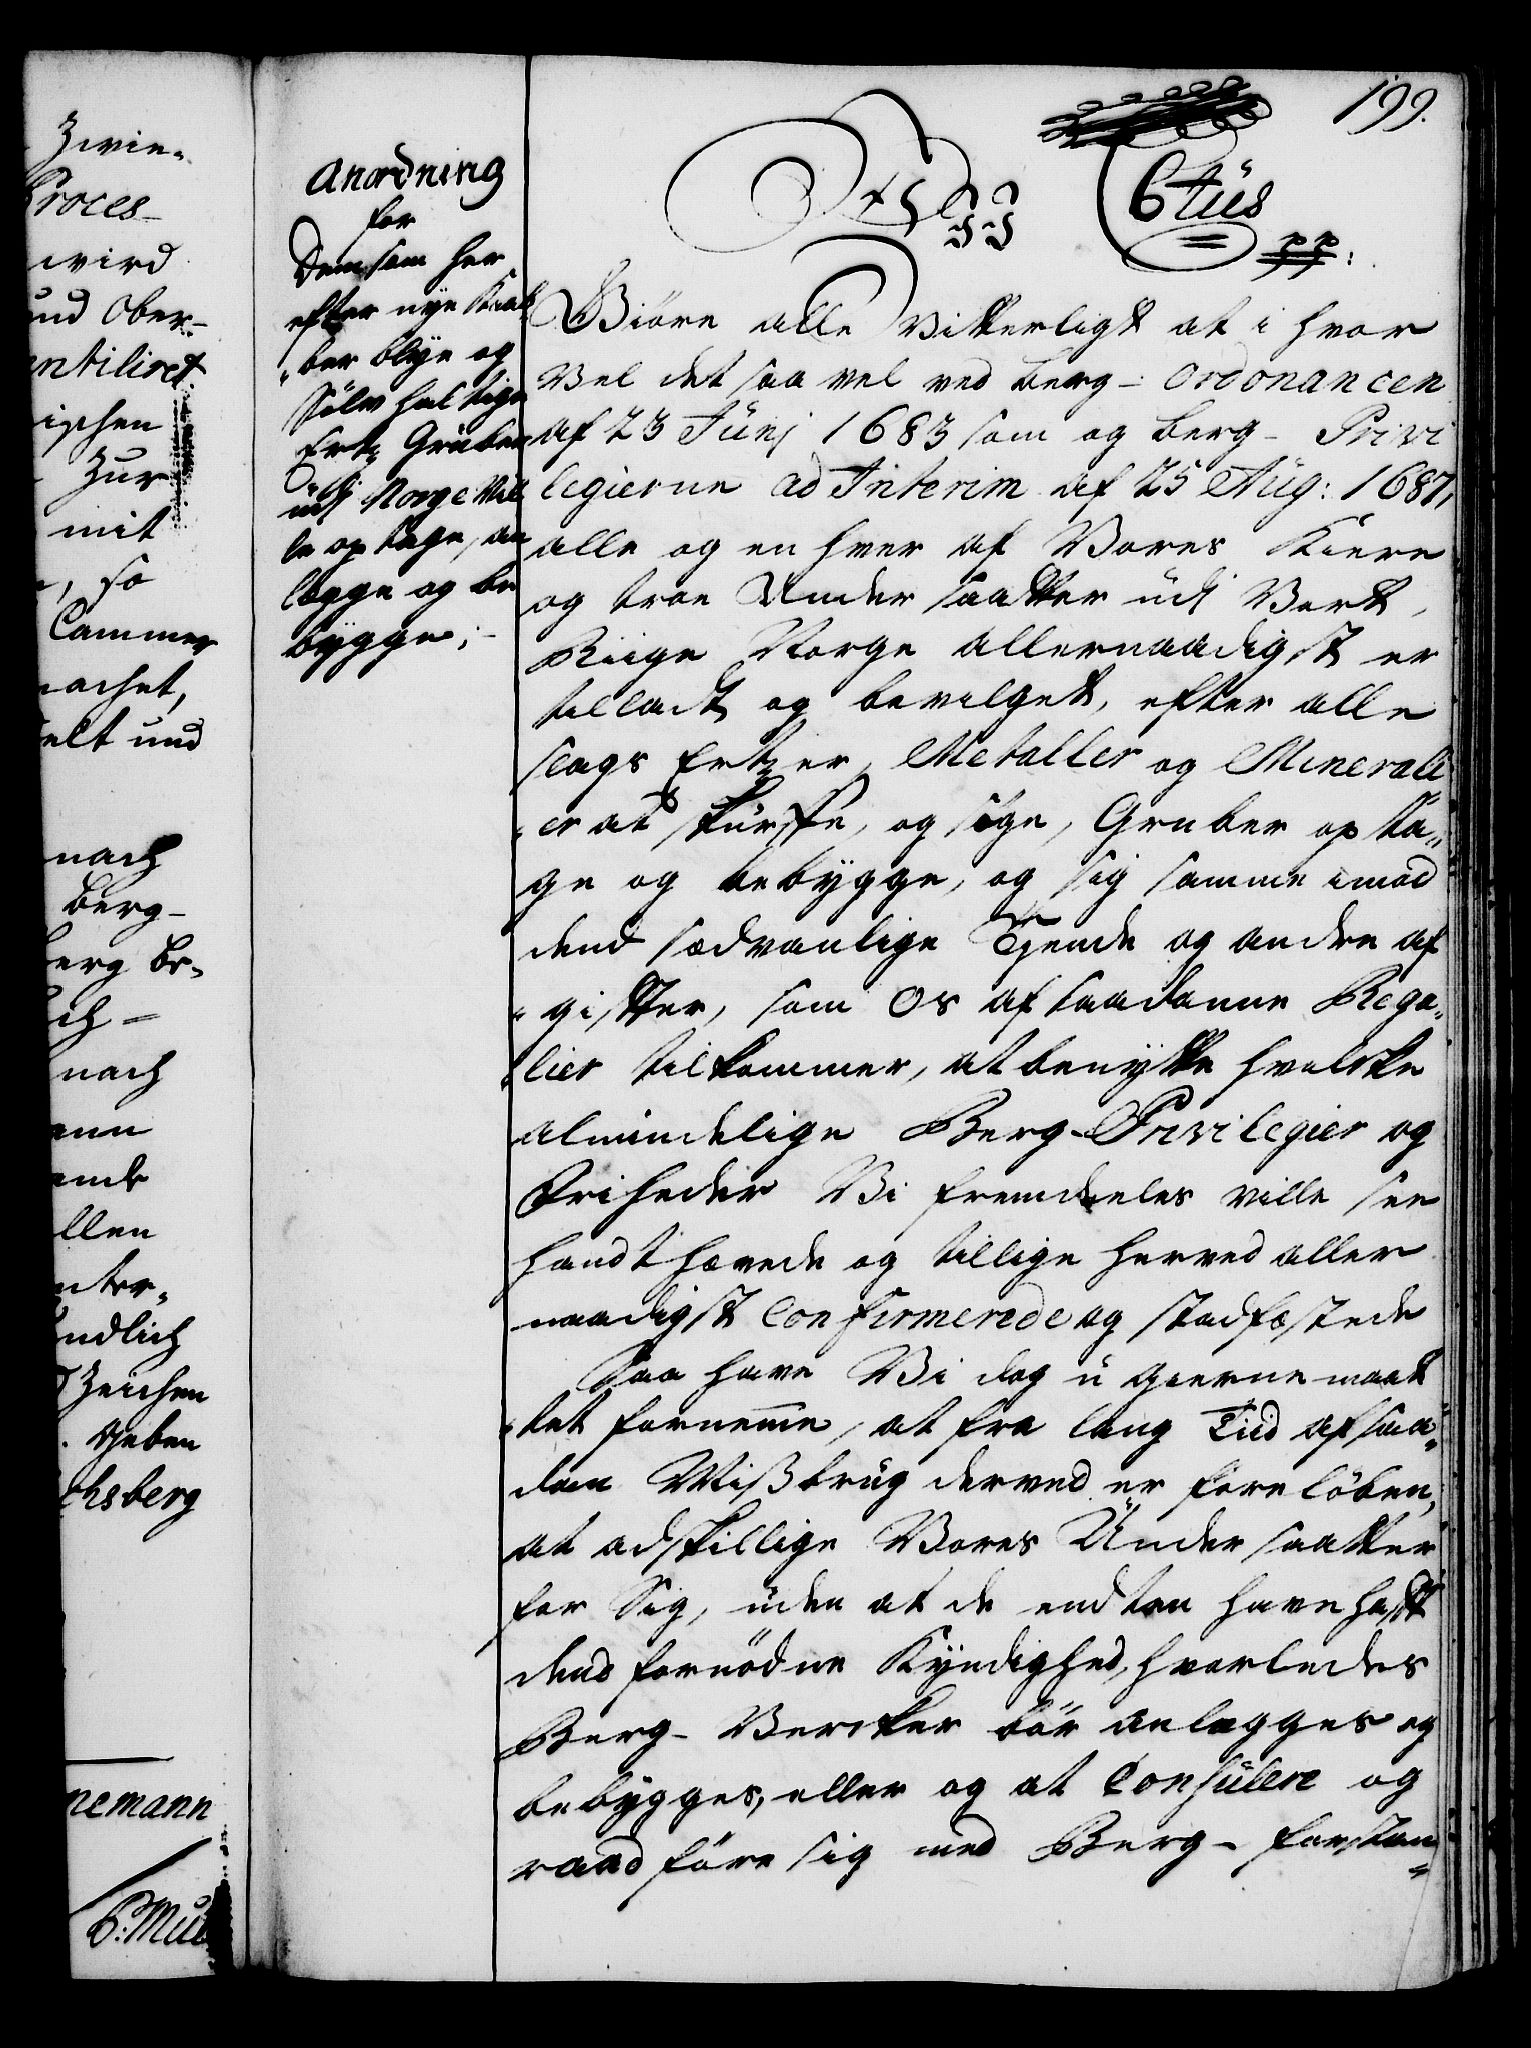 199.
Zwie-
Proces-
wird
und Ober-
entiliret
ischen
Zur
mit
so
Cammer
machet,
elt und
nach
Berg-
berg be-
ch-
nach
ann
ende
llen
nter-
ndlich
Zeichen
geben
chsberg
nemann
B: Mull
Anordning
for
Dem, som her
efter nye Kaab-
"ber blye og
Sølv haltige
Ertz Gruber
udj Norge Vil
le op tage, an
lægge og be
bygge;-
6tüs
pp:
Giöre alle Vitterligt at i hvor
Vel det saa vel ved Berg-Ordonancen
af 23 Junj 1683 som og Berg-Privi
legierne ad Interim af 25 Aug: 1687,
alle og en hver af Vores Kiere
og troe Under saatter udj Vort,
Riige Norge allernaadigst er
tilladt og bevilget, efter alle
slags Ertzer, Metaller og Minerali
"er at skürffe, og søge, Gruber op ta-
ge og bebygge, og sig samme imod
dend sædvanlige Tjende og andre af
"gifter, som Os af saadanne Rega-
"lier tilkommer, at benytte hvilcke
almindelige Berg-Privilegier og
Friheder Vi fremdeeles ville see
handthævede og tillige herved aller
naadigst Confirmerede og stadfæstede
Saa have Vi dog u gierne maat
"tet fornemme, at fra lang Tiid af saa-
dan Misbrug derved er fore löben,
at adskillige Vores Under saatter
for Sig, uden at de endten have hafft
dend fornödne Kyndighed, hvorledes
Berg-Vercker bör anlegges og
bebygges, eller og at Consulere og
raadföre sig med Berg-forstan-